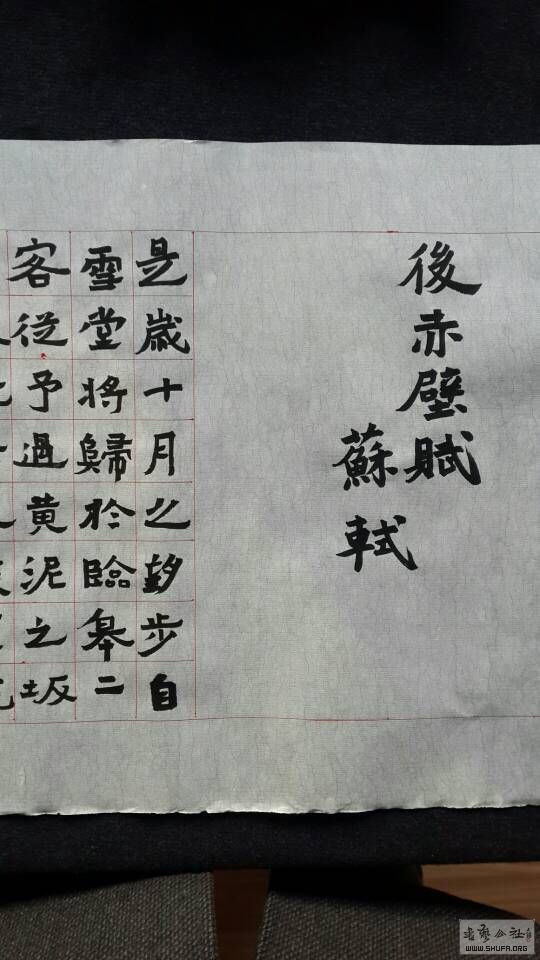 後赤壁賦
蘇軾
是歲十月之望步自
雪堂將歸於臨皋二
客從予過黄泥之坂
WWW.SHUFA.ORG